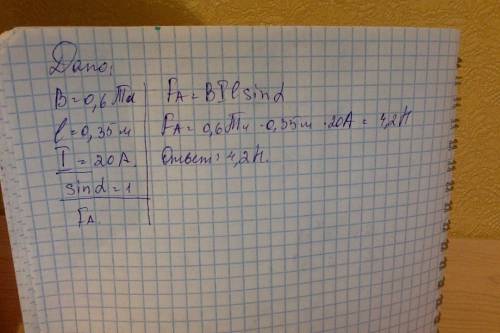 Дано:
B = 0,6 Тл
l = 0,35 м
I = 20 А
sin α = 1
Fа
Fа = B I l sin α
Fа = 0,6 Тл · 0,35 м · 20 А = 4,2 Н
Ответ: 4,2 Н.